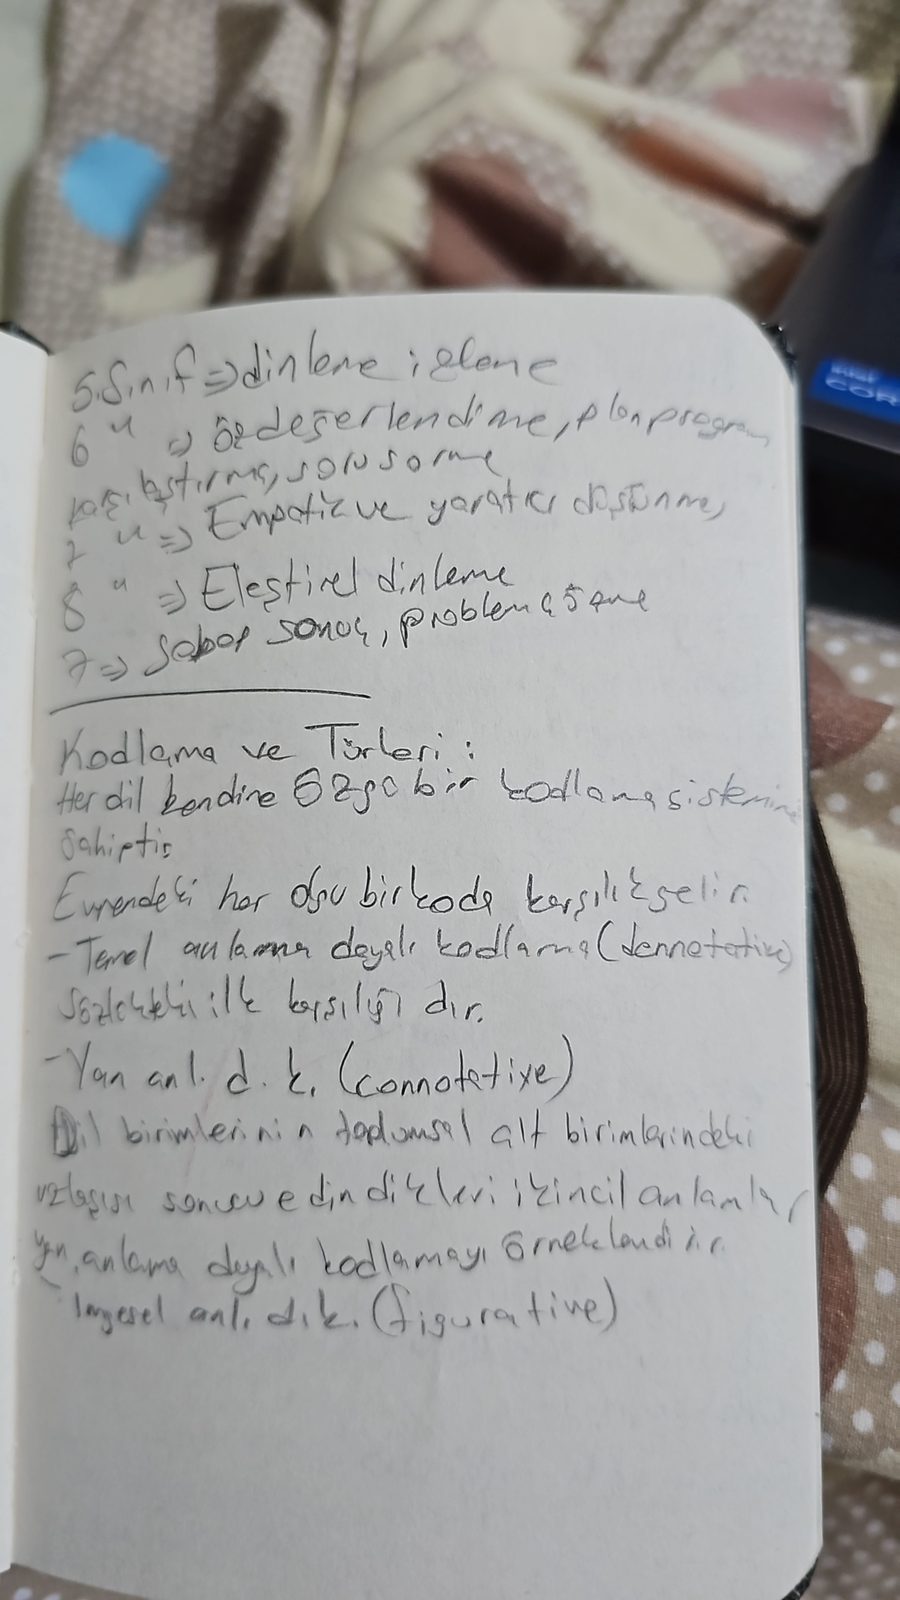 5.Sınıf => dinleme izleme
6 " => Özdeğerlendirme, plan program
karşılaştırma, soru sorma
7 " => Empatik ve yaratıcı düşünme,
8 " => Eleştirel dinleme
7 => Sebep sonuç, problem çözme
Kodlama ve Türleri :
Her dil kendine özgü bir kodlama sistemine
sahiptir.
Evrendeki her olgu bir koda karşılık gelir.
- Temel anlama dayalı kodlama (dennotative)
sözlükteki ilk karşılığı dır.
- Yan anl. d. k. (connotative)
Dil birimlerinin toplumsal alt birimlerindeki
uzlaşısı sonucu edindikleri ikincil anlamlar
yan anlama dayalı kodlamayı örneklendirir.
- İmgesel anl. d. k. (figurative)
CORE